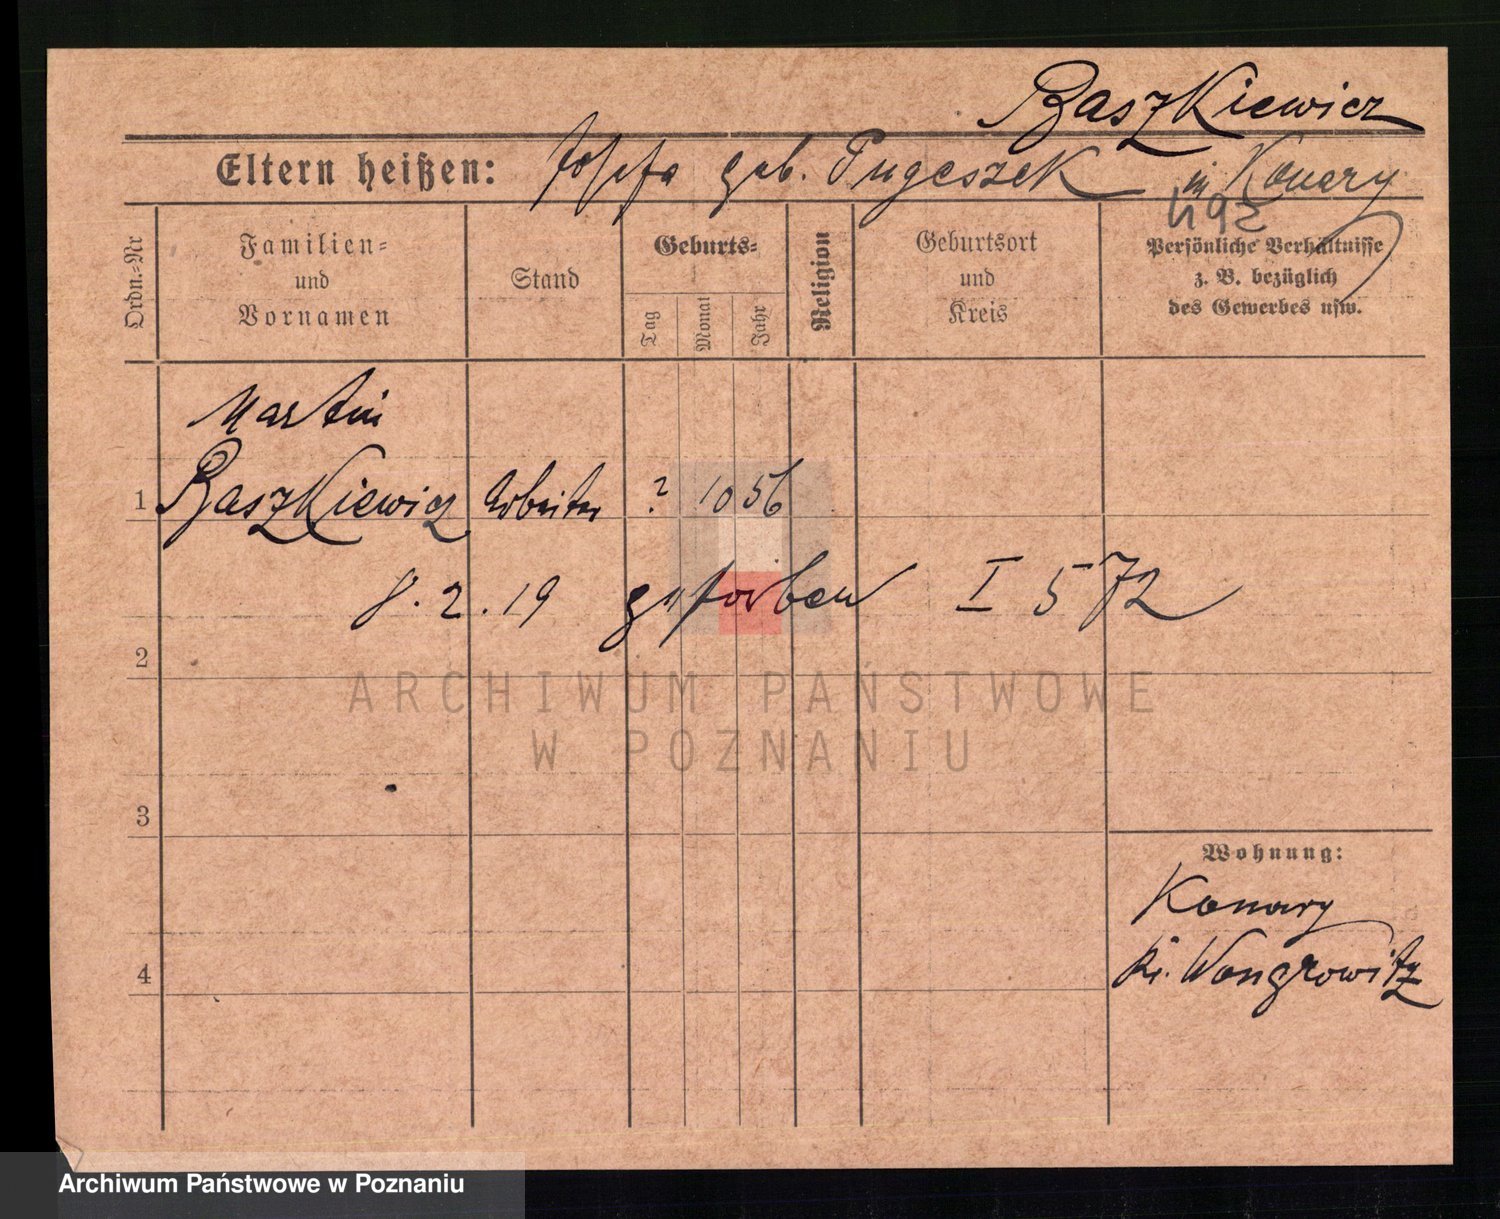 Baszkiewicz
Eltern heißen: Josefa geb. Pugaszek in Konary
492
Ordn.-Nr
Familien-
und
Vornamen
Stand
Geburts-
Tag
Monat
Jahr
Religion
Geburtsort
und
Kreis
Persönliche Verhältnisse
z. B. bezüglich
des Gewerbes usw.
Martin
1 Baszkiewicz Arbeiter ? 10 56
8. 2. 19 gestorben I 572
2
ARCHIWUM PAŃSTWOWE
W POZNANIU
3
Wohnung:
Konary
Kr. Wongrowitz
4
Archiwum Państwowe w Poznaniu